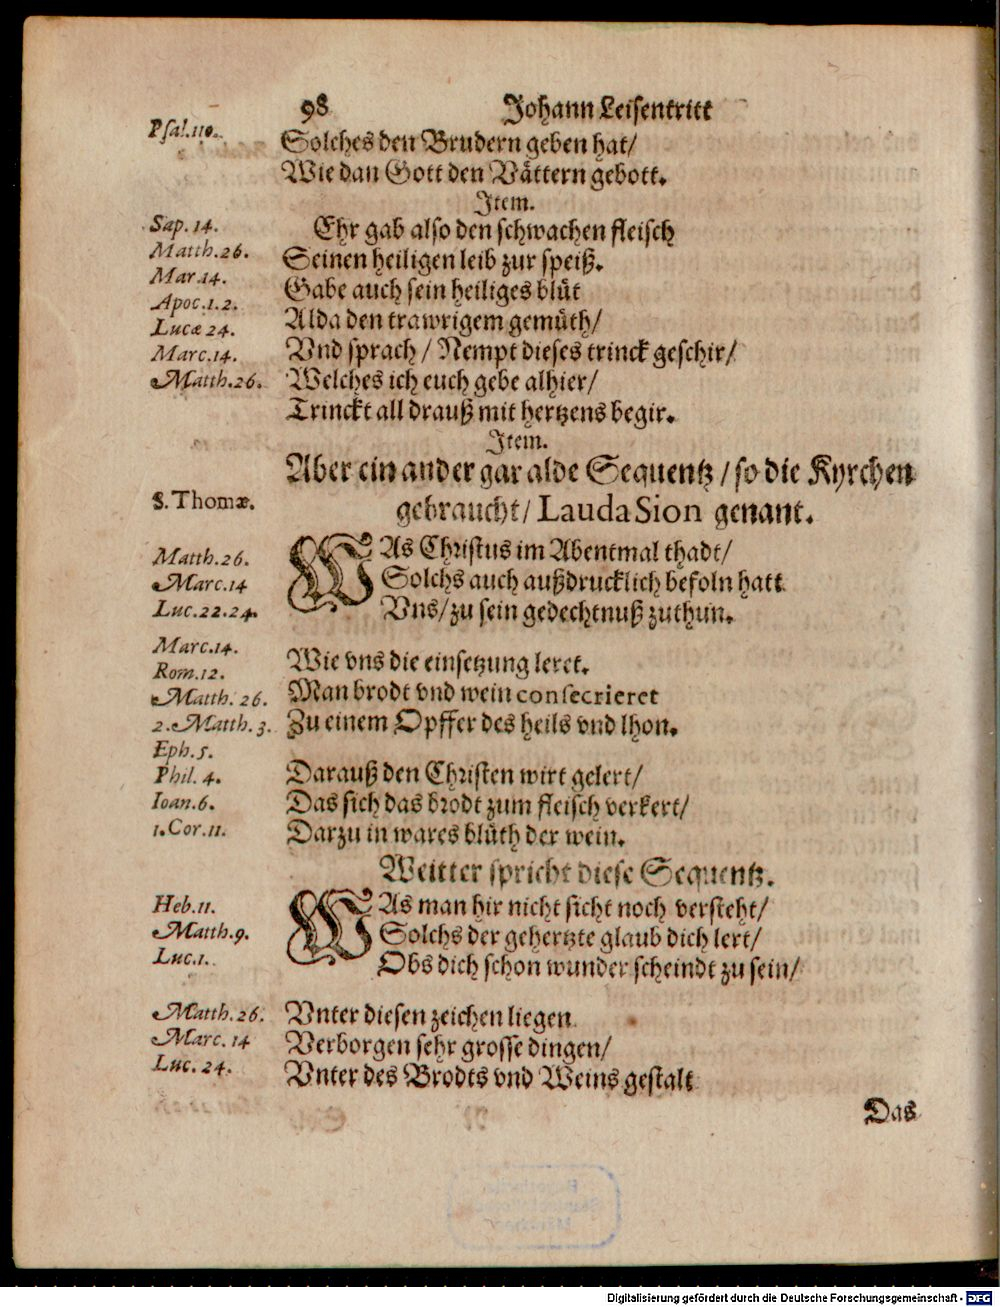 98 Johann Leisentritt
Psal.110.
Solches den Brudern geben hat/
Wie dan Gott den Vättern gebott.
Item.
Sap. 14.
Ehr gab also den schwachen fleisch
Matth.26.
Seinen heiligen leib zur speiß.
Mar.14.
Gabe auch sein heiliges blůt
Apoc.1.2.
Alda den trawrigem gemůth/
Lucæ 24.
Marc.14.
Vnd sprach / Nempt dieses trinck geschir/
Matth.26.
Welches ich euch gebe alhier/
Trinckt all drauß mit hertzens begir.
Item.
Aber ein ander gar alde Sequentz / so die Kyrchen
S. Thomæ.
gebraucht/ Lauda Sion genant.
Matth.26.
WAs Christus im Abentmal thadt/
Marc.14
Solchs auch außdrucklich befoln hatt
Luc.22.24.
Vns/ zu sein gedechtnuß zuthun.
Marc.14.
Wie vns die einsetzung leret.
Rom.12.
Matth. 26.
Man brodt vnd wein consecrieret
2. Matth. 3.
Zu einem Opffer des heils vnd lhon.
Eph.5.
Phil. 4.
Darauß den Christen wirt gelert/
Ioan.6.
Das sich das brodt zum fleisch verkert/
1.Cor.11.
Darzu in wares blůth der wein.
Weitter spricht diese Sequentz.
Heb.11.
WAs man hir nicht sicht noch versteht/
Matth.9.
Solchs der gehertzte glaub dich lert/
Luc.1.
Obs dich schon wunder scheindt zu sein/
Matth.26.
Vnter diesen zeichen liegen
Marc. 14
Verborgen sehr grosse dingen/
Luc. 24.
Vnter des Brodts vnd Weins gestalt
Das
Digitalisierung gefördert durch die Deutsche Forschungsgemeinschaft - DFG